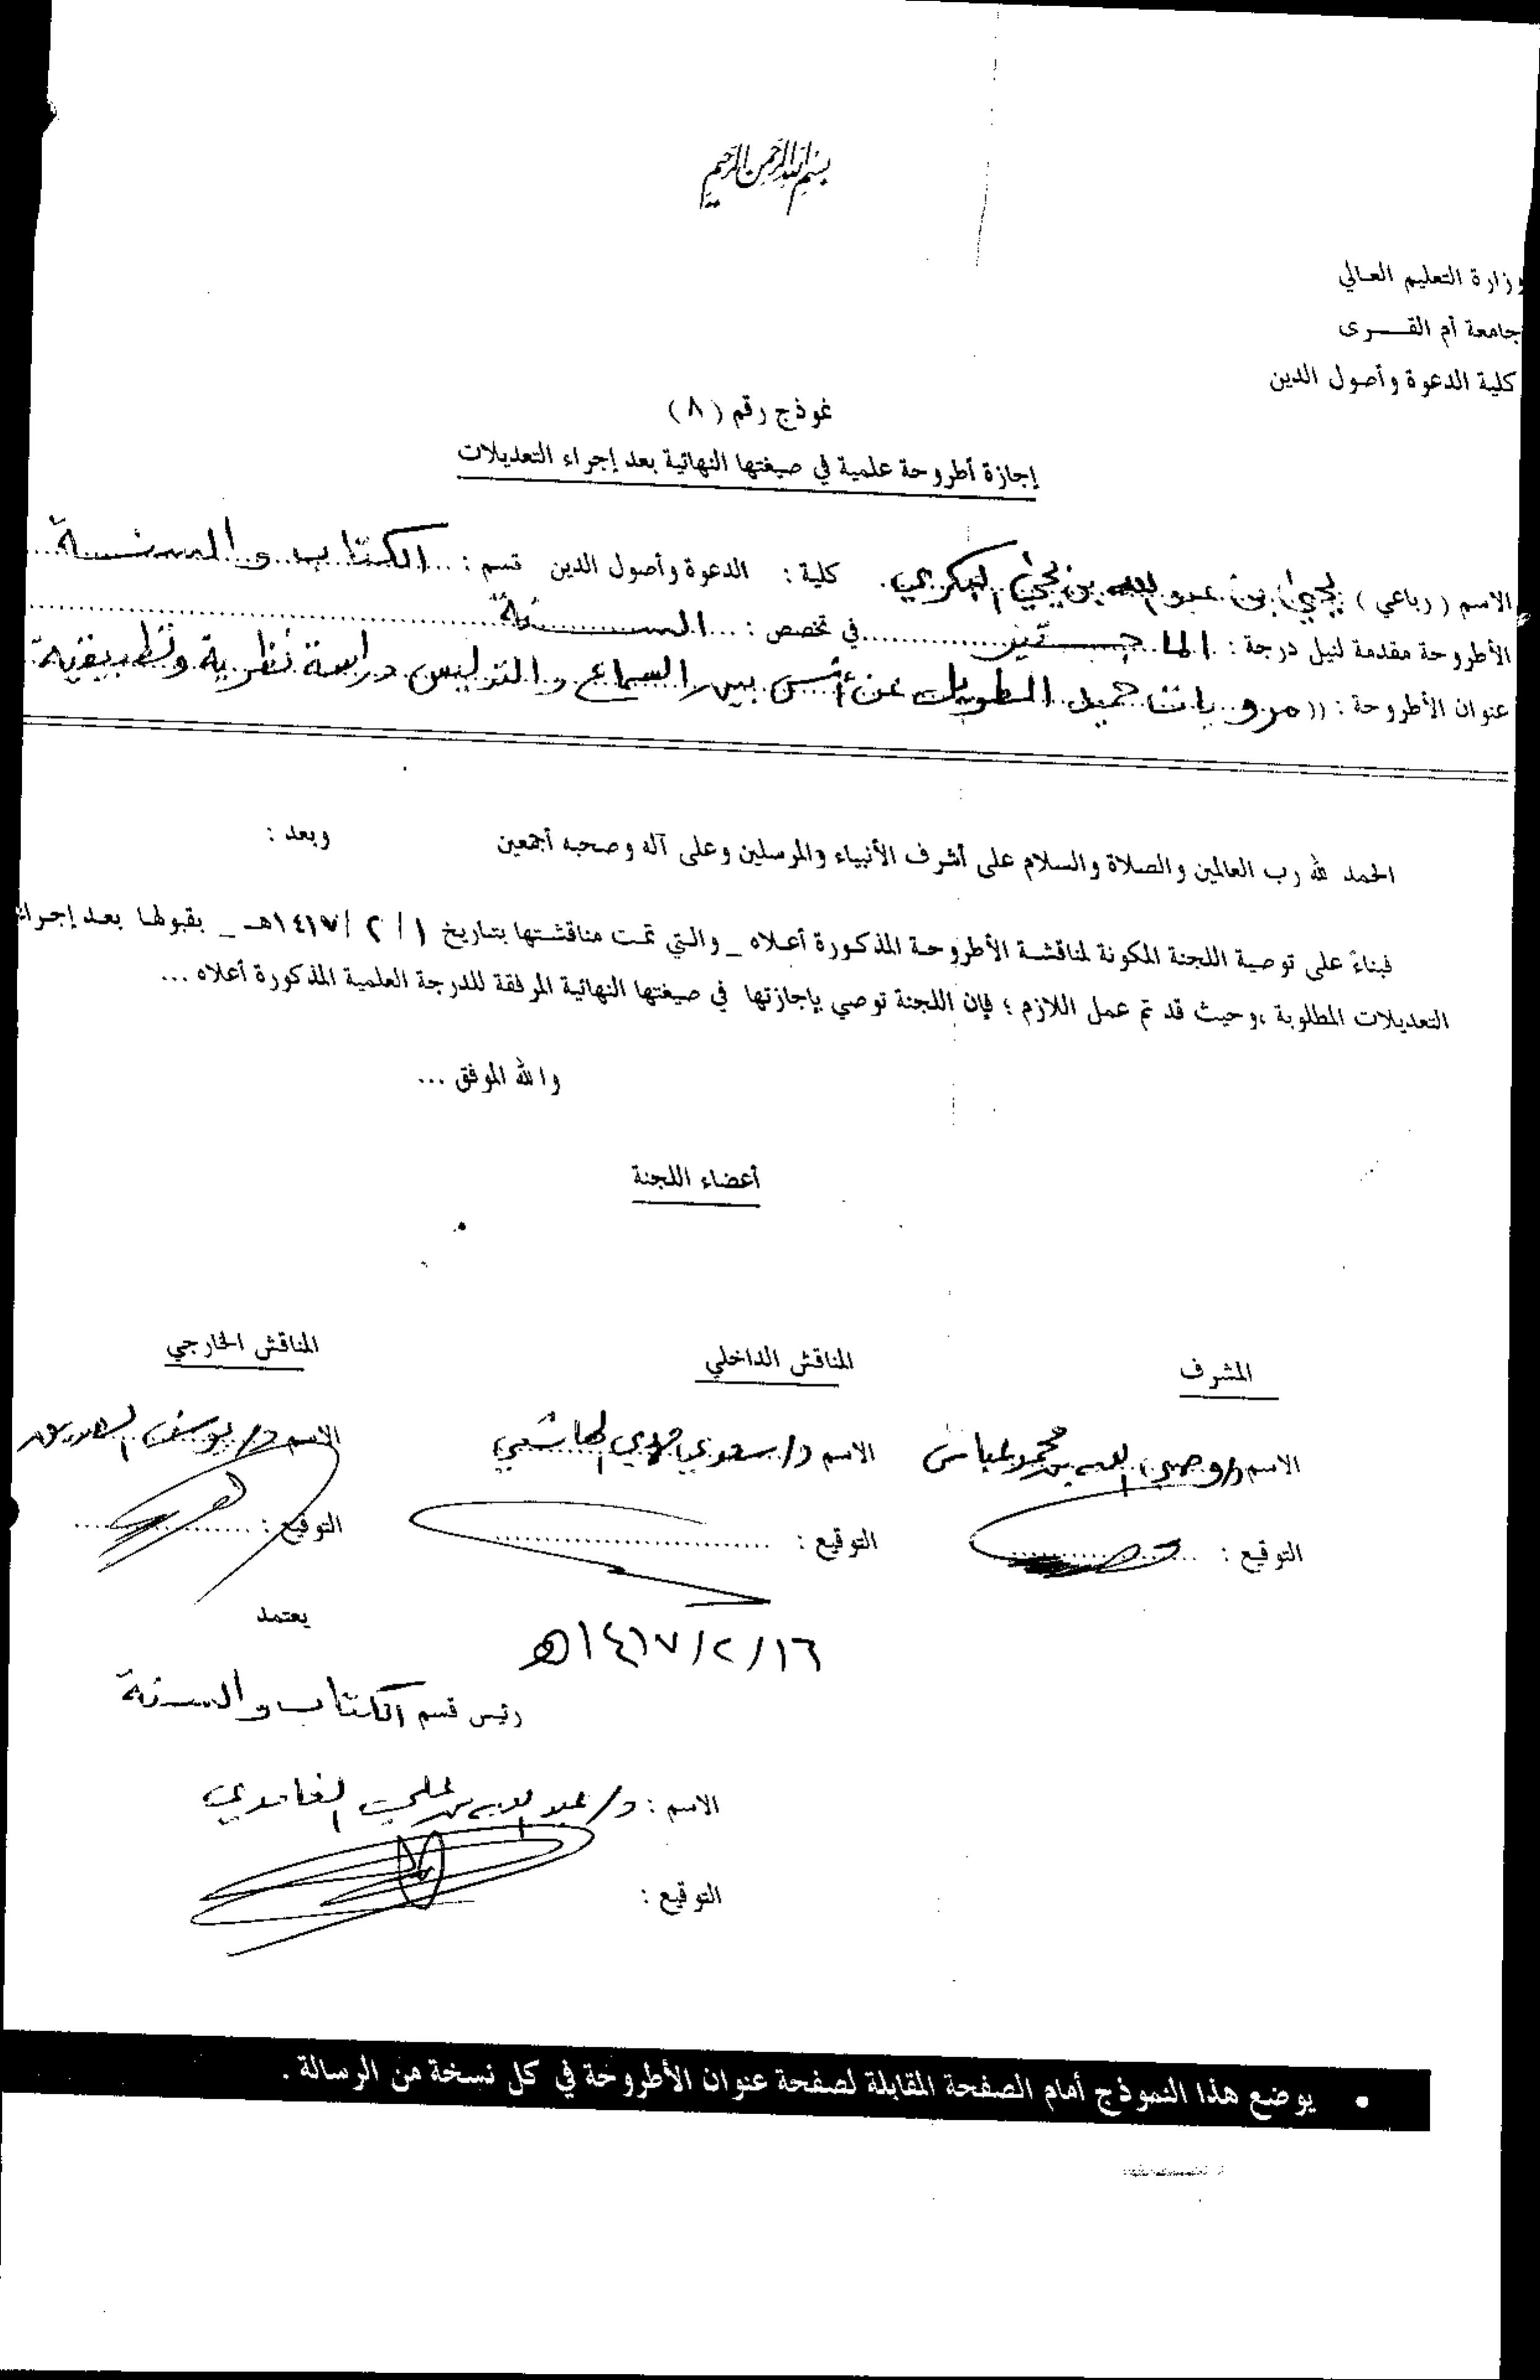 بسم الله الرحمن الرحيم
وزارة التعليم العالي
جامعة أم القــرى
كلية الدعوة وأصول الدين
نموذج رقم ( ٨ )
إجازة أطروحة علمية في صيغتها النهائية بعد إجراء التعديلات
الاسم ( رباعي ) يحيى بن عبد الله بن يحيى البكري. كلية : الدعوة وأصول الدين قسم : الكتاب والسنة
الأطروحة مقدمة لنيل درجة : الماجستير في تخصص : السنة
عنوان الأطروحة : (( مرويات حميد الطويل عن أنس بين السماع والتدليس دراسة نظرية وتطبيقية
الحمد لله رب العالمين والصلاة والسلام على أشرف الأنبياء والمرسلين وعلى آله وصحبه أجمعين وبعد :
فبناءً على توصية اللجنة المكونة لمناقشة الأطروحة المذكورة أعلاه _ والتي تمت مناقشتها بتاريخ ١ / ٢ / ١٤١٧هـ _ بقبولها بعد إجراء
التعديلات المطلوبة ، وحيث قد تم عمل اللازم ؛ فإن اللجنة توصي بإجازتها في صيغتها النهائية المرفقة للدرجة العلمية المذكورة أعلاه ...
والله الموفق ...
أعضاء اللجنة
المشرف المناقش الداخلي المناقش الخارجي
الاسم د/ وصي الله بن محمد عباس الاسم د/ سعدي مهدي الهاشمي الاسم د/ يوسف الصديق
التوقيع : التوقيع : التوقيع :
يعتمد
١٦ / ٢ / ١٤١٧هـ
رئيس قسم الكتاب والسنة
الاسم : د/ عبد الله بن علي الغامدي
التوقيع :
• يوضع هذا النموذج أمام الصفحة المقابلة لصفحة عنوان الأطروحة في كل نسخة من الرسالة .